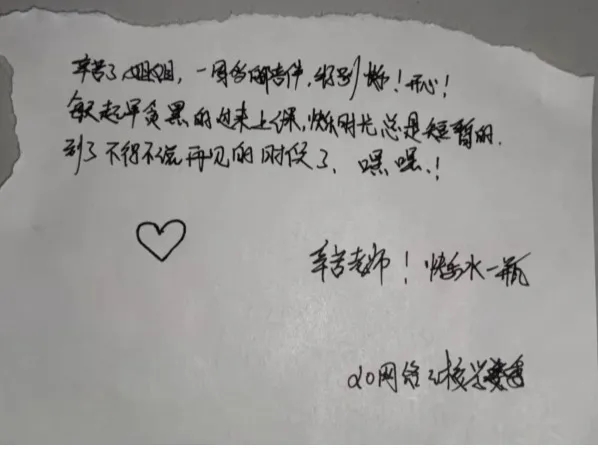 辛苦了姐姐，一周多的陪伴，特别快乐！开心！
每天起早贪黑的过来上课，快乐时光总是短暂的.
到了不得不说再见的时候了、嘿嘿！
辛苦老师！快乐水一瓶
20网络